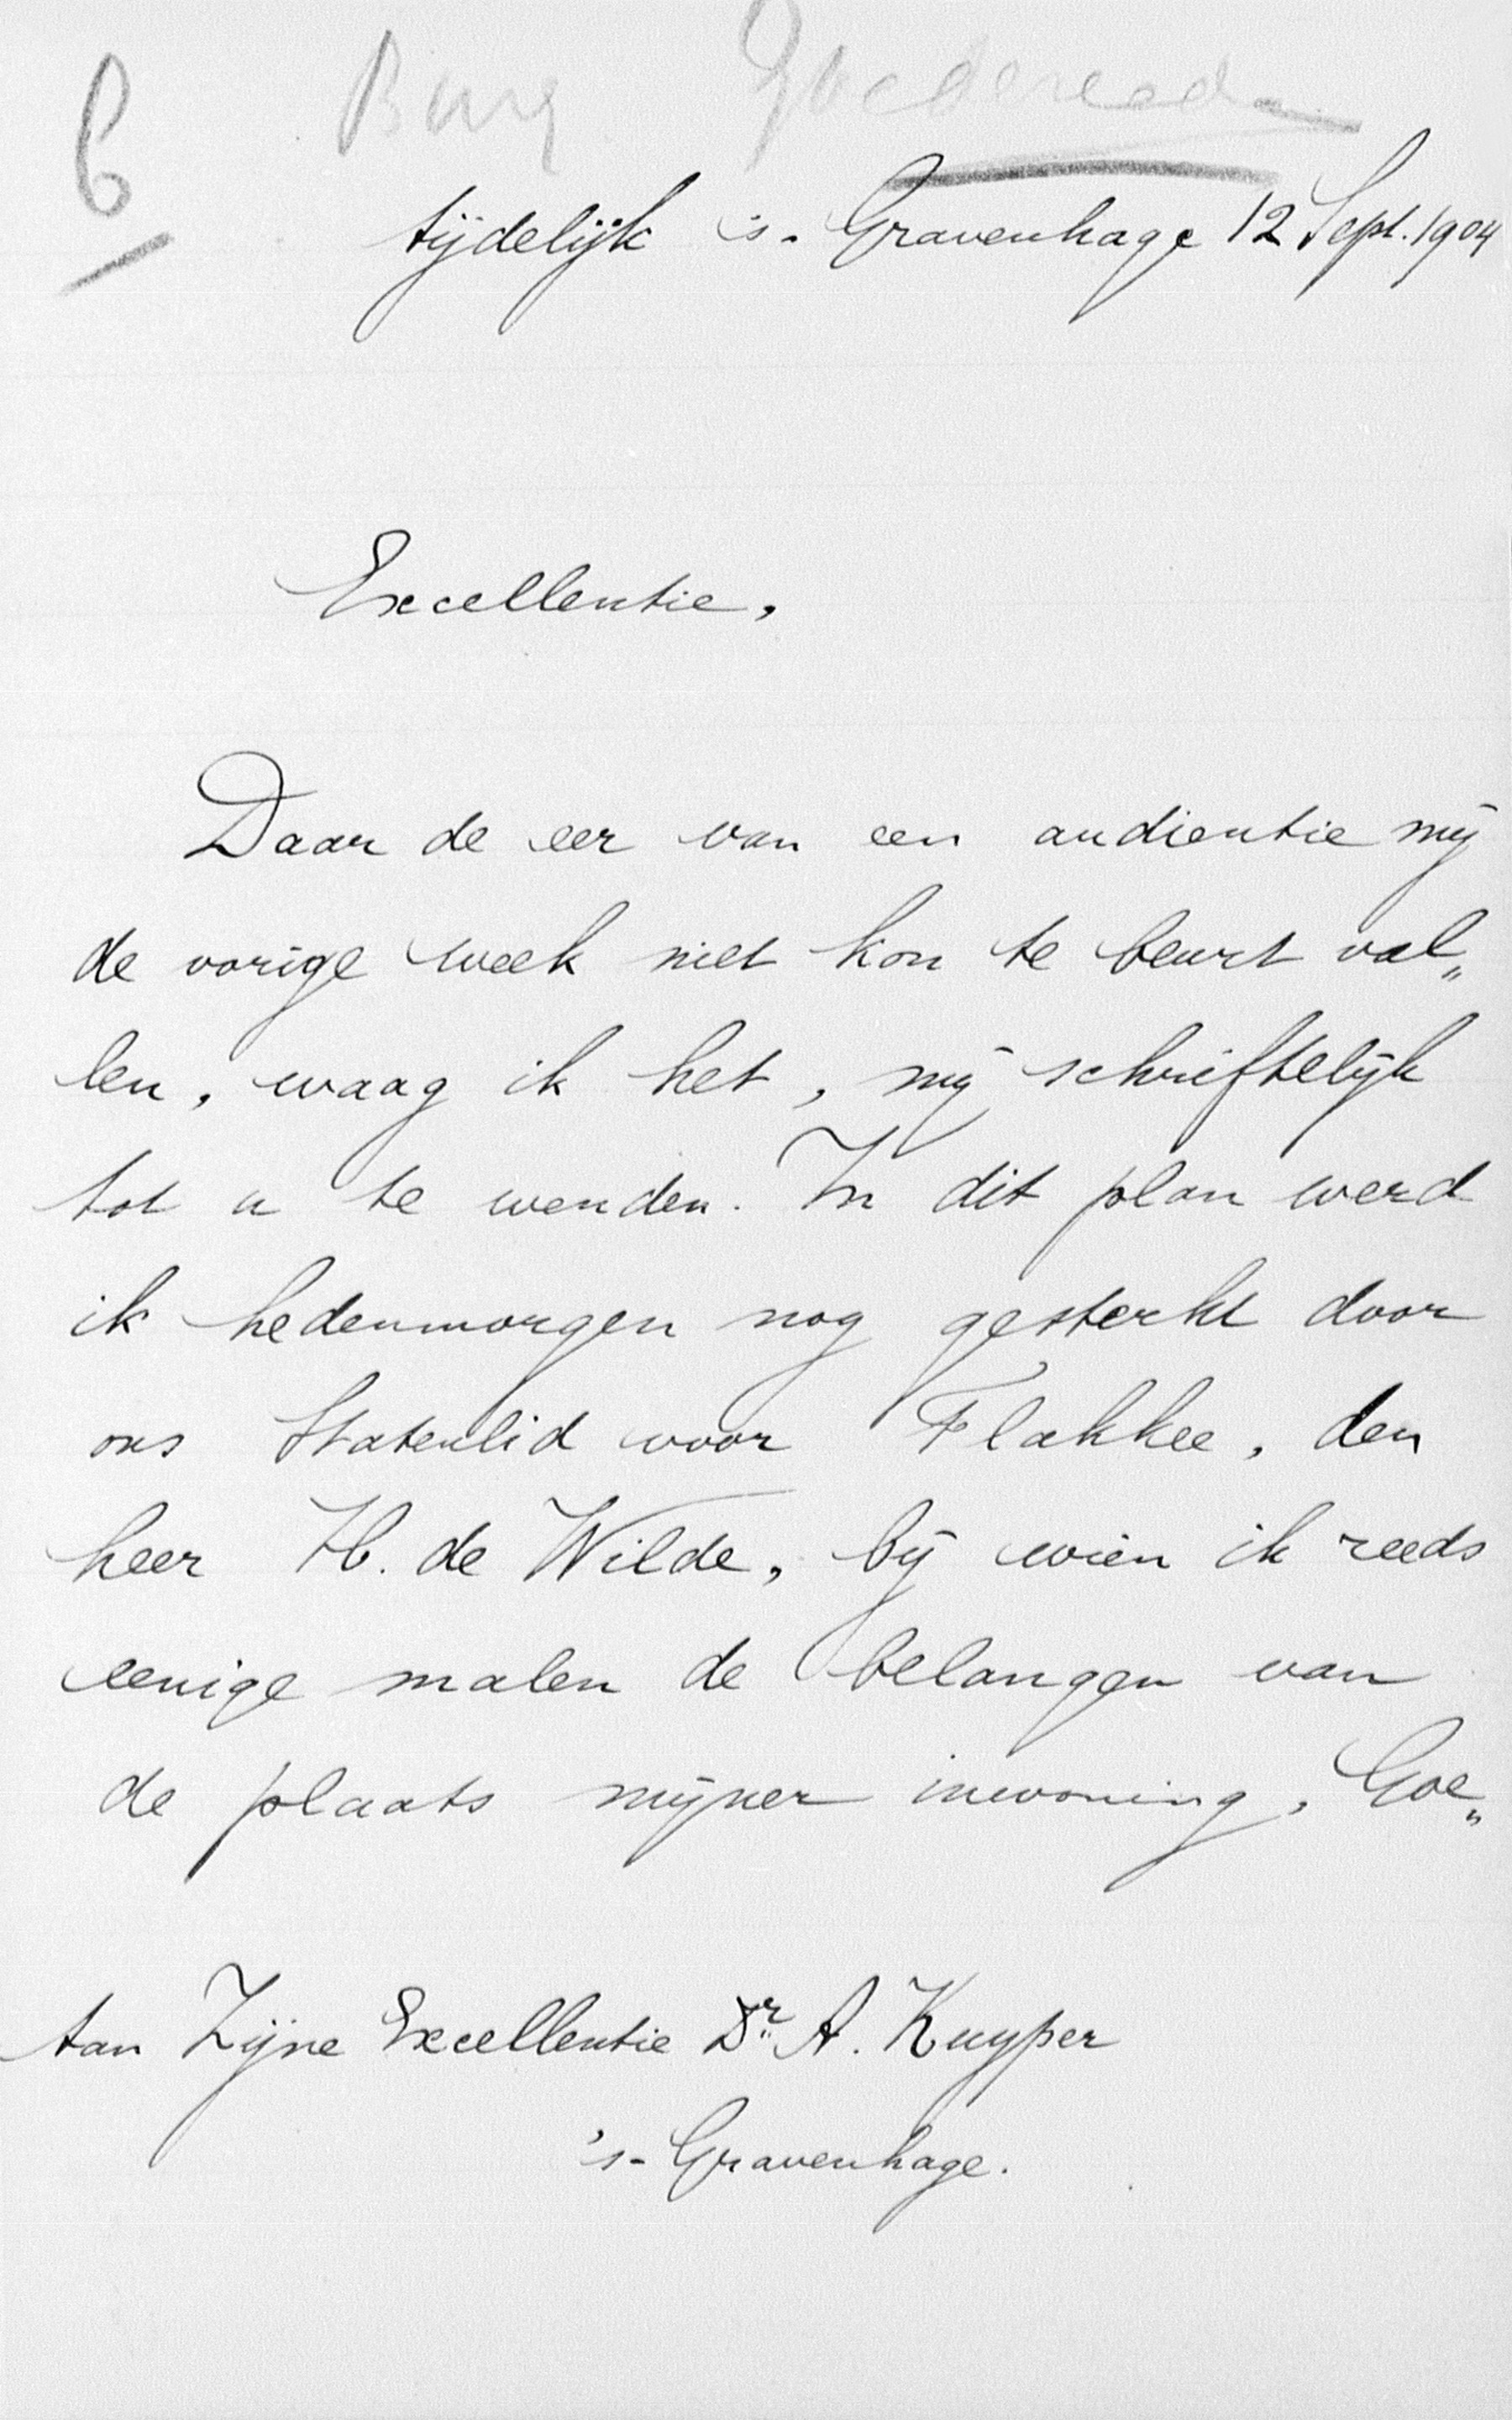 6 Burg Goedereede
tijdelijk 's-Gravenhage 12 Sept. 1904
Excellentie,
Daar de eer van een audientie mij
de vorige week niet kon te beurt val„
len, waag ik het, mij schriftelijk
tot u te wenden. In dit plan werd
ik hedenmorgen nog gesterkt door
ons Statenlid voor Flakkee, den
heer H. de Wilde, bij wien ik reeds
eenige malen de belangen van
de plaats mijner inwoning, Goe„
Aan Zijne Excellentie Dr. A. Kuyper
's-Gravenhage.